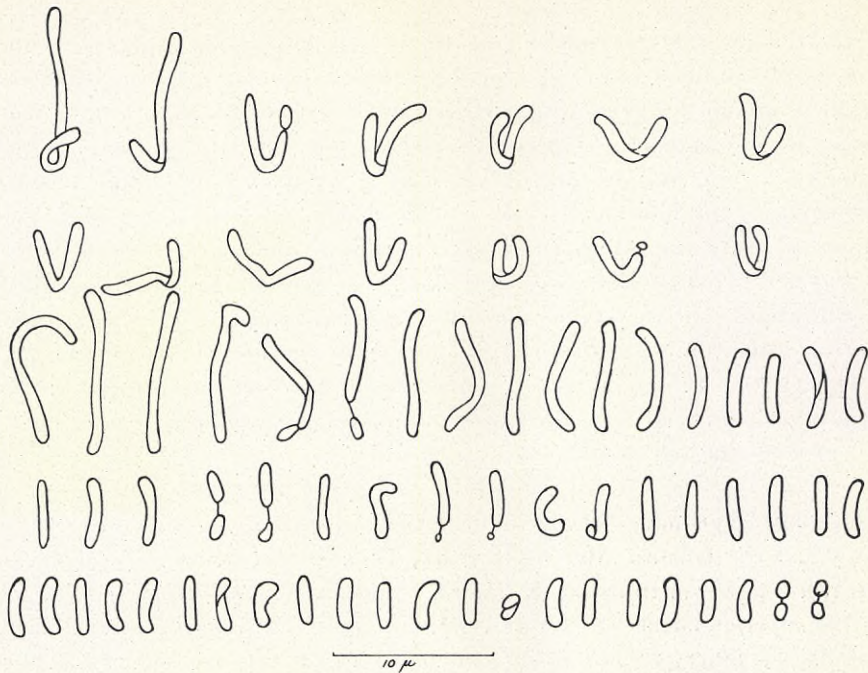 10 μ